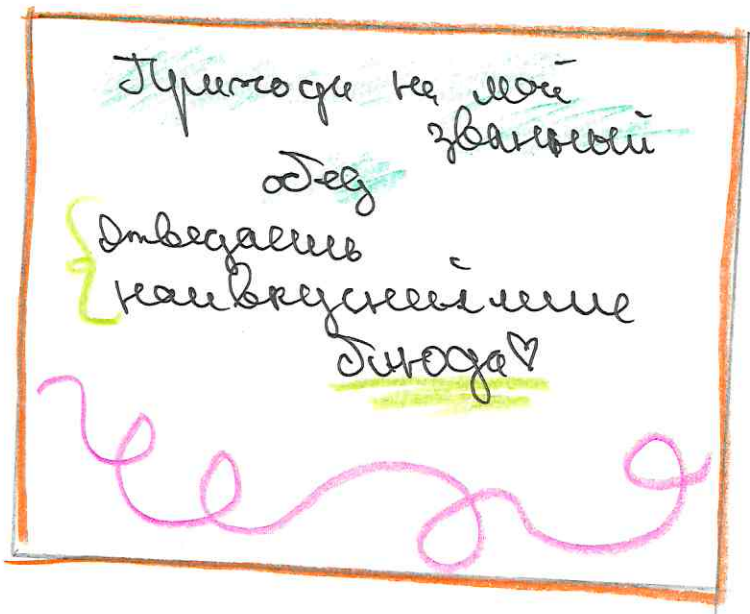 Приходи на мой
званный
обед
Отведаешь
наивкуснейшие
блюда♡